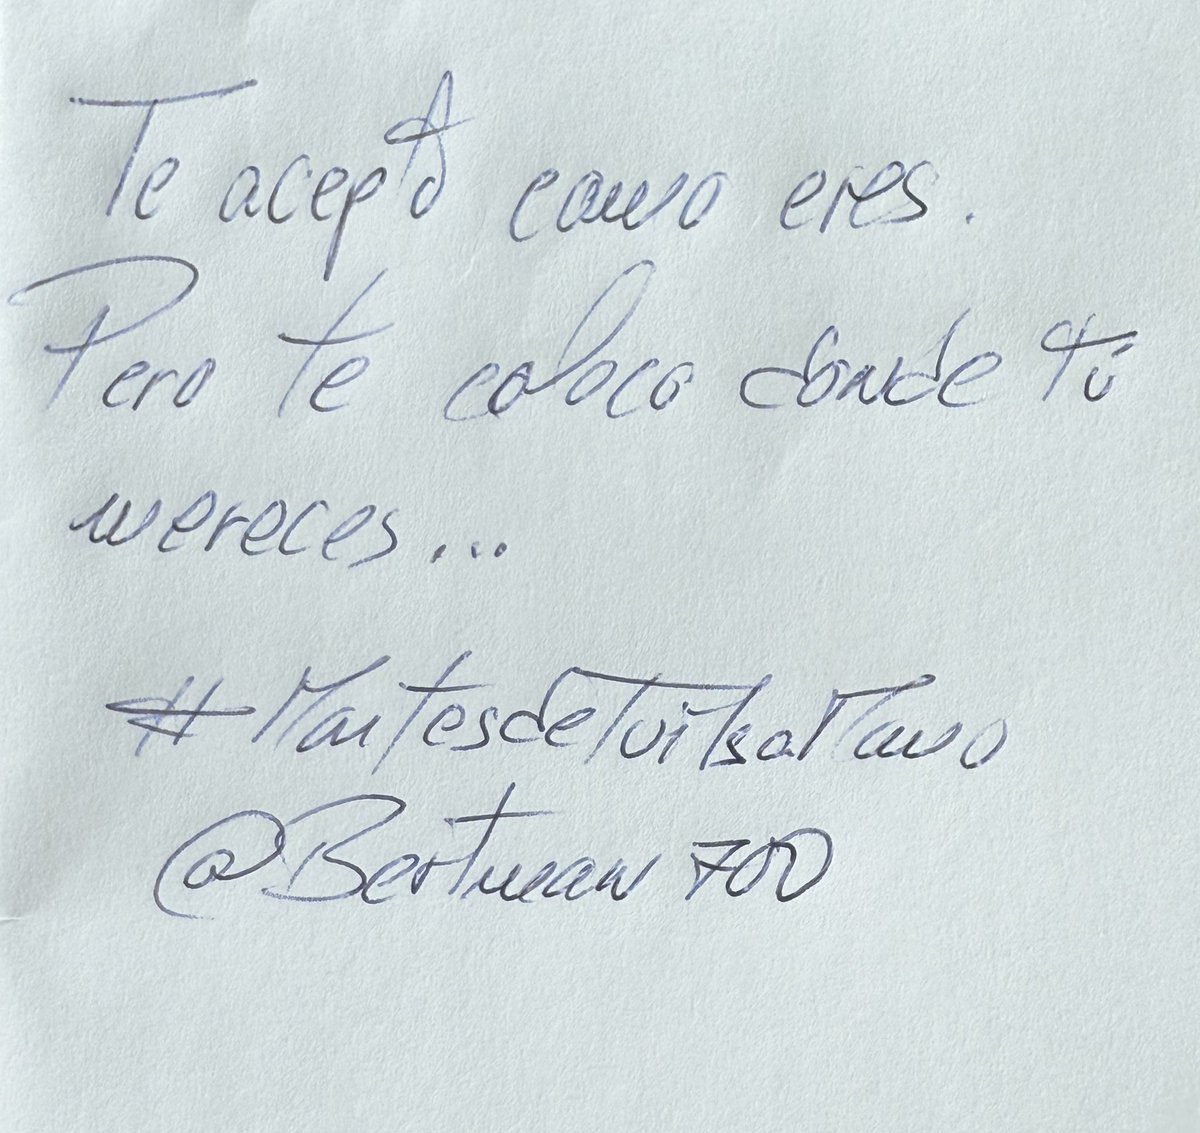 Te acepto como eres.
Pero te coloco donde tú
mereces...
#MartesdeTuitsaMano
@Bertman700